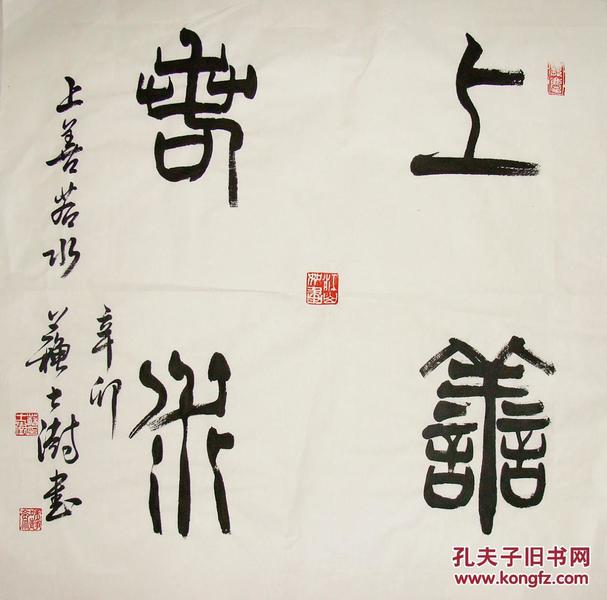 上善
若水
上善若水
辛卯
蘇士澍書
江山如畫
孔夫子旧书网
www.kongfz.com